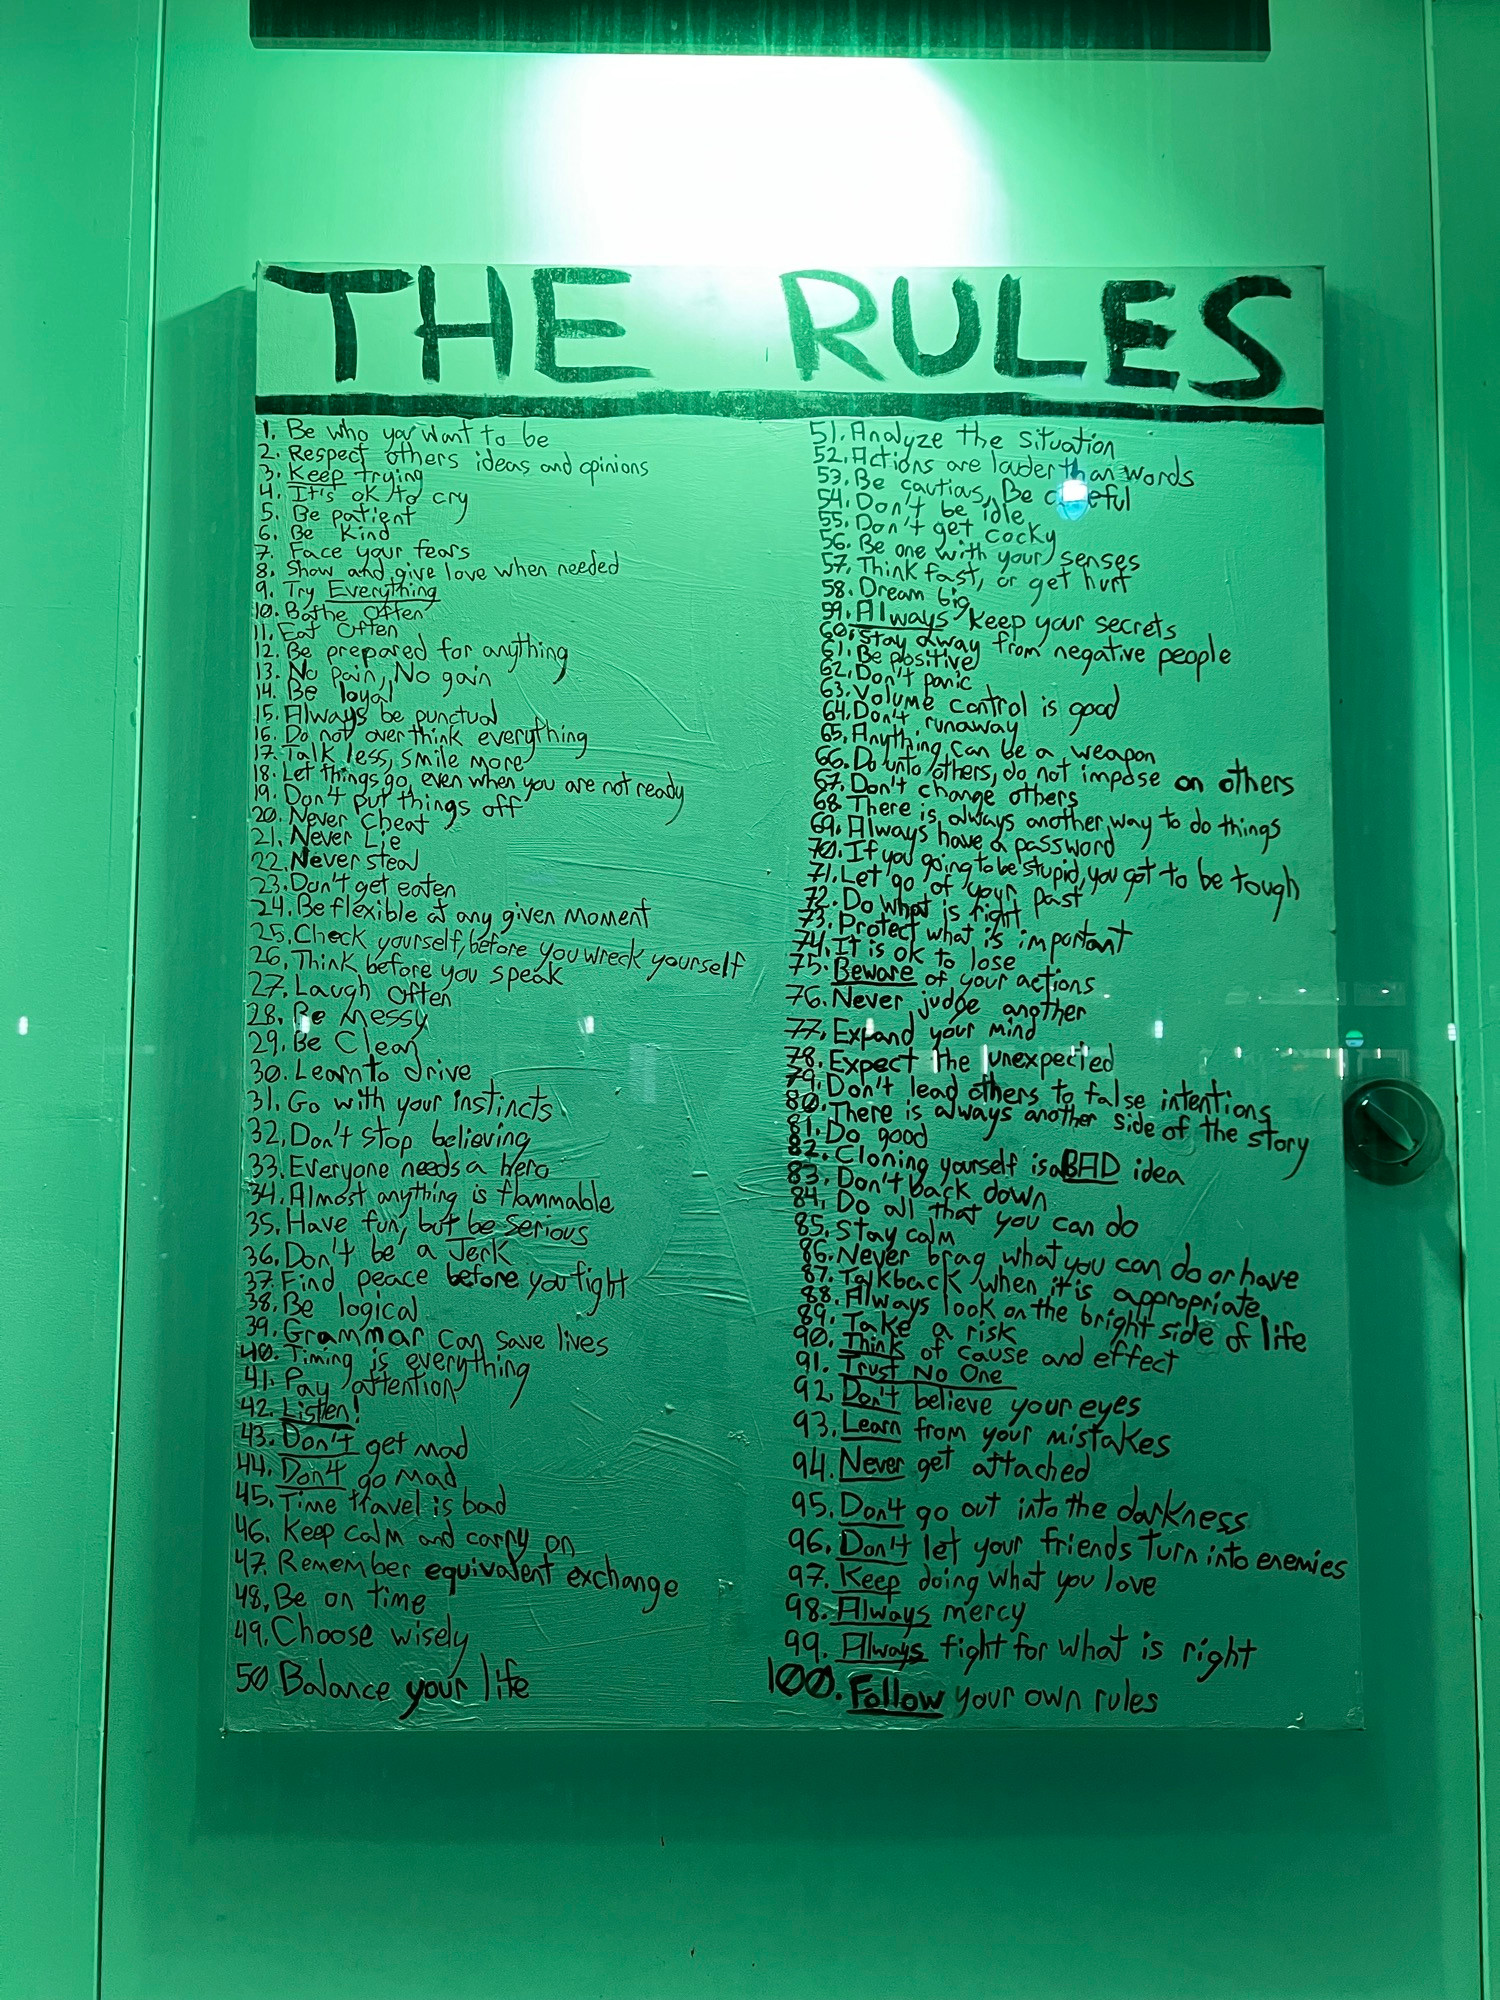 THE RULES
1. Be who you want to be
2. Respect others ideas and opinions
3. Keep trying
4. It's ok to cry
5. Be patient
6. Be Kind
7. Face your fears
8. Show and give love when needed
9. Try Everything
10. Bathe Often
11. Eat Often
12. Be prepared for anything
13. No Pain, No gain
14. Be loyal
15. Always be punctual
16. Do not over think everything
17. Talk less, smile more
18. Let things go, even when you are not ready
19. Don't put things off
20. Never Cheat
21. Never Lie
22. Never steal
23. Don't get eaten
24. Be flexible at any given moment
25. Check yourself, before you wreck yourself
26. Think before you speak
27. Laugh Often
28. Be Messy
29. Be Clean
30. Learn to drive
31. Go with your instincts
32. Don't stop believing
33. Everyone needs a hero
34. Almost anything is flammable
35. Have fun, but be Serious
36. Don't be a Jerk
37. Find peace before you fight
38. Be logical
39. Grammar can save lives
40. Timing is everything
41. Pay attention
42. Listen!
43. Don't get mad
44. Don't go mad
45. Time travel is bad
46. Keep calm and carry on
47. Remember equivalent exchange
48. Be on time
49. Choose wisely
50 Balance your life
51. Analyze the situation
52. Actions are louder than words
53. Be cautious, Be careful
54. Don't be idle
55. Don't get cocky
56. Be one with your senses
57. Think fast, or get hurt
58. Dream big
59. Always keep your secrets
60. Stay away from negative people
61. Be positive
62. Don't panic
63. Volume control is good
64. Don't runaway
65. Anything can be a weapon
66. Do unto others, do not impose on others
67. Don't change others
68. There is always another way to do things
69. Always have a password
70. If you going to be stupid, you got to be tough
71. Let go of your past
72. Do what is right
73. Protect what is important
74. It is ok to lose
75. Beware of your actions
76. Never judge another
77. Expand your mind
78. Expect the unexpected
79. Don't lead others to false intentions
80. There is always another side of the story
81. Do good
82. Cloning yourself is a BAD idea
83. Don't back down
84. Do all that you can do
85. Stay calm
86. Never brag what you can do or have
87. Talkback when it is appropriate
88. Always look on the bright side of life
89. Take a risk
90. Think of cause and effect
91. Trust No One
92. Don't believe your eyes
93. Learn from your mistakes
94. Never get attached
95. Don't go out into the darkness
96. Don't let your friends turn into enemies
97. Keep doing what you love
98. Always mercy
99. Always fight for what is right
100. Follow your own rules